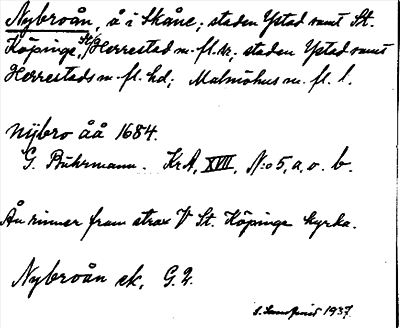 Nybroån, å i Skåne; staden Ystad samt St.
Köpinge, St. Herrestad m. fl. k:r; staden Ystad samt
Herrestads m. fl. hd; Malmöhus m. fl. l.
Nÿbro åå 1684.
G. Buhrmann. KrA, XVII, N:o 5, a, o. b.
Ån rinner fram strax V St. Köpinge kyrka.
Nybroån ek, G. 2.
1937